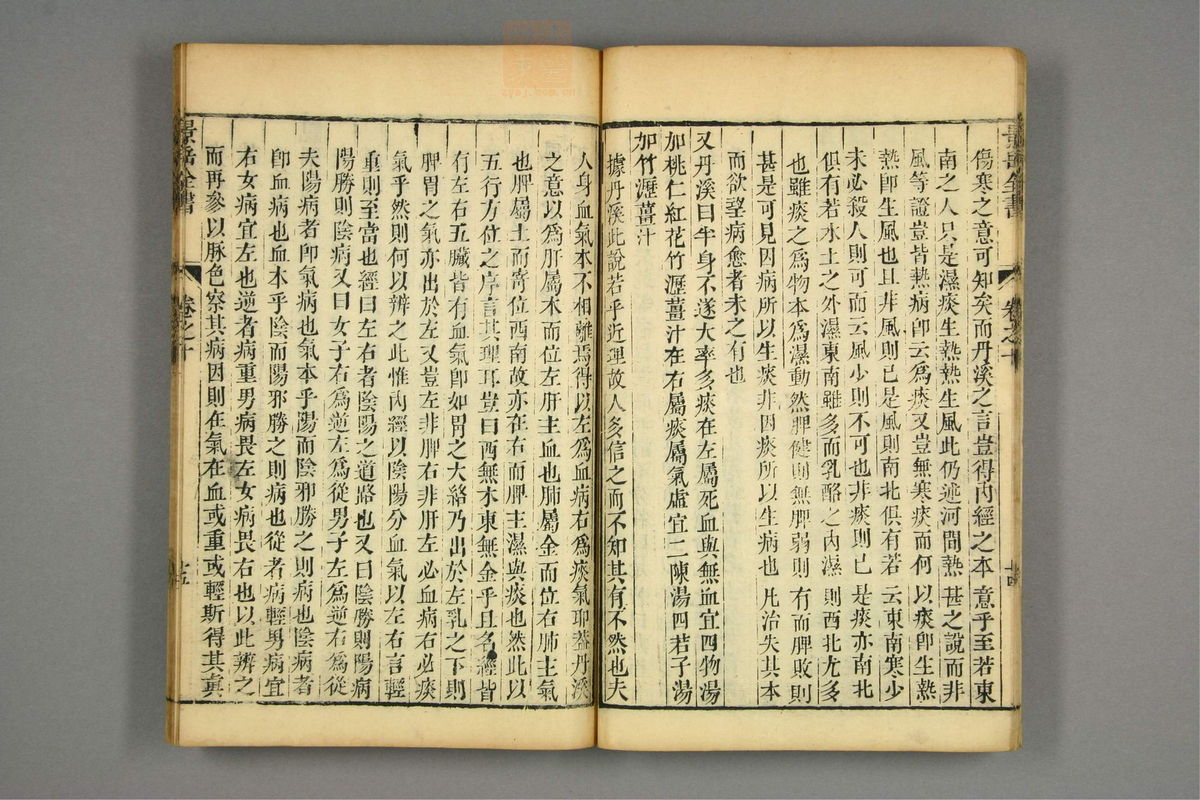 景岳全書
卷之十
十四
傷寒之意可知矣而丹溪之言豈得內經之本意乎至若東
南之人只是濕痰生熱熱生風此仍述河間熱甚之說而非
風等證豈皆熱病卽云爲痰又豈無寒痰而何以痰卽生熱
熱卽生風也且非風則已是風則南北俱有若云東南寒少
未必殺人則可而云風少則不可也非痰則已是痰亦南北
俱有若水土之外濕東南雖多而乳酪之內濕則西北尤多
也雖痰之爲物本爲濕動然脾健則無脾弱則有而脾敗則
甚是可見因病所以生痰非因痰所以生病也凡治失其本
而欲望病愈者未之有也
又丹溪曰半身不遂大率多痰在左屬死血與無血宜四物湯
加桃仁紅花竹瀝薑汁在右屬痰屬氣虛宜二陳湯四君子湯
加竹瀝薑汁
據丹溪此說若乎近理故人多信之而不知其有不然也夫
人身血氣本不相離焉得以左爲血病右爲痰氣耶蓋丹溪
之意以爲肝屬木而位左肝主血也肺屬金而位右肺主氣
也脾屬土而寄位西南故亦在右而脾主濕與痰也然此以
五行方位之序言其理耳豈曰西無木東無金乎且各經皆
有左右五臟皆有血氣卽如胃之大絡乃出於左乳之下則
脾胃之氣亦出於左又豈左非脾右非肝左必血病右必痰
氣乎然則何以辨之此惟內經以陰陽分血氣以左右言輕
重則至當也經曰左右者陰陽之道路也又曰陰勝則陽病
陽勝則陰病又曰女子右爲逆左爲從男子左爲逆右爲從
夫陽病者卽氣病也氣本乎陽而陰邪勝之則病也陰病者
卽血病也血本乎陰而陽邪勝之則病也從者病輕男病宜
右女病宜左也逆者病重男病畏左女病畏右也以此辨之
而再參以脉色察其病因則在氣在血或重或輕斯得其眞
景岳全書
卷之十
十五